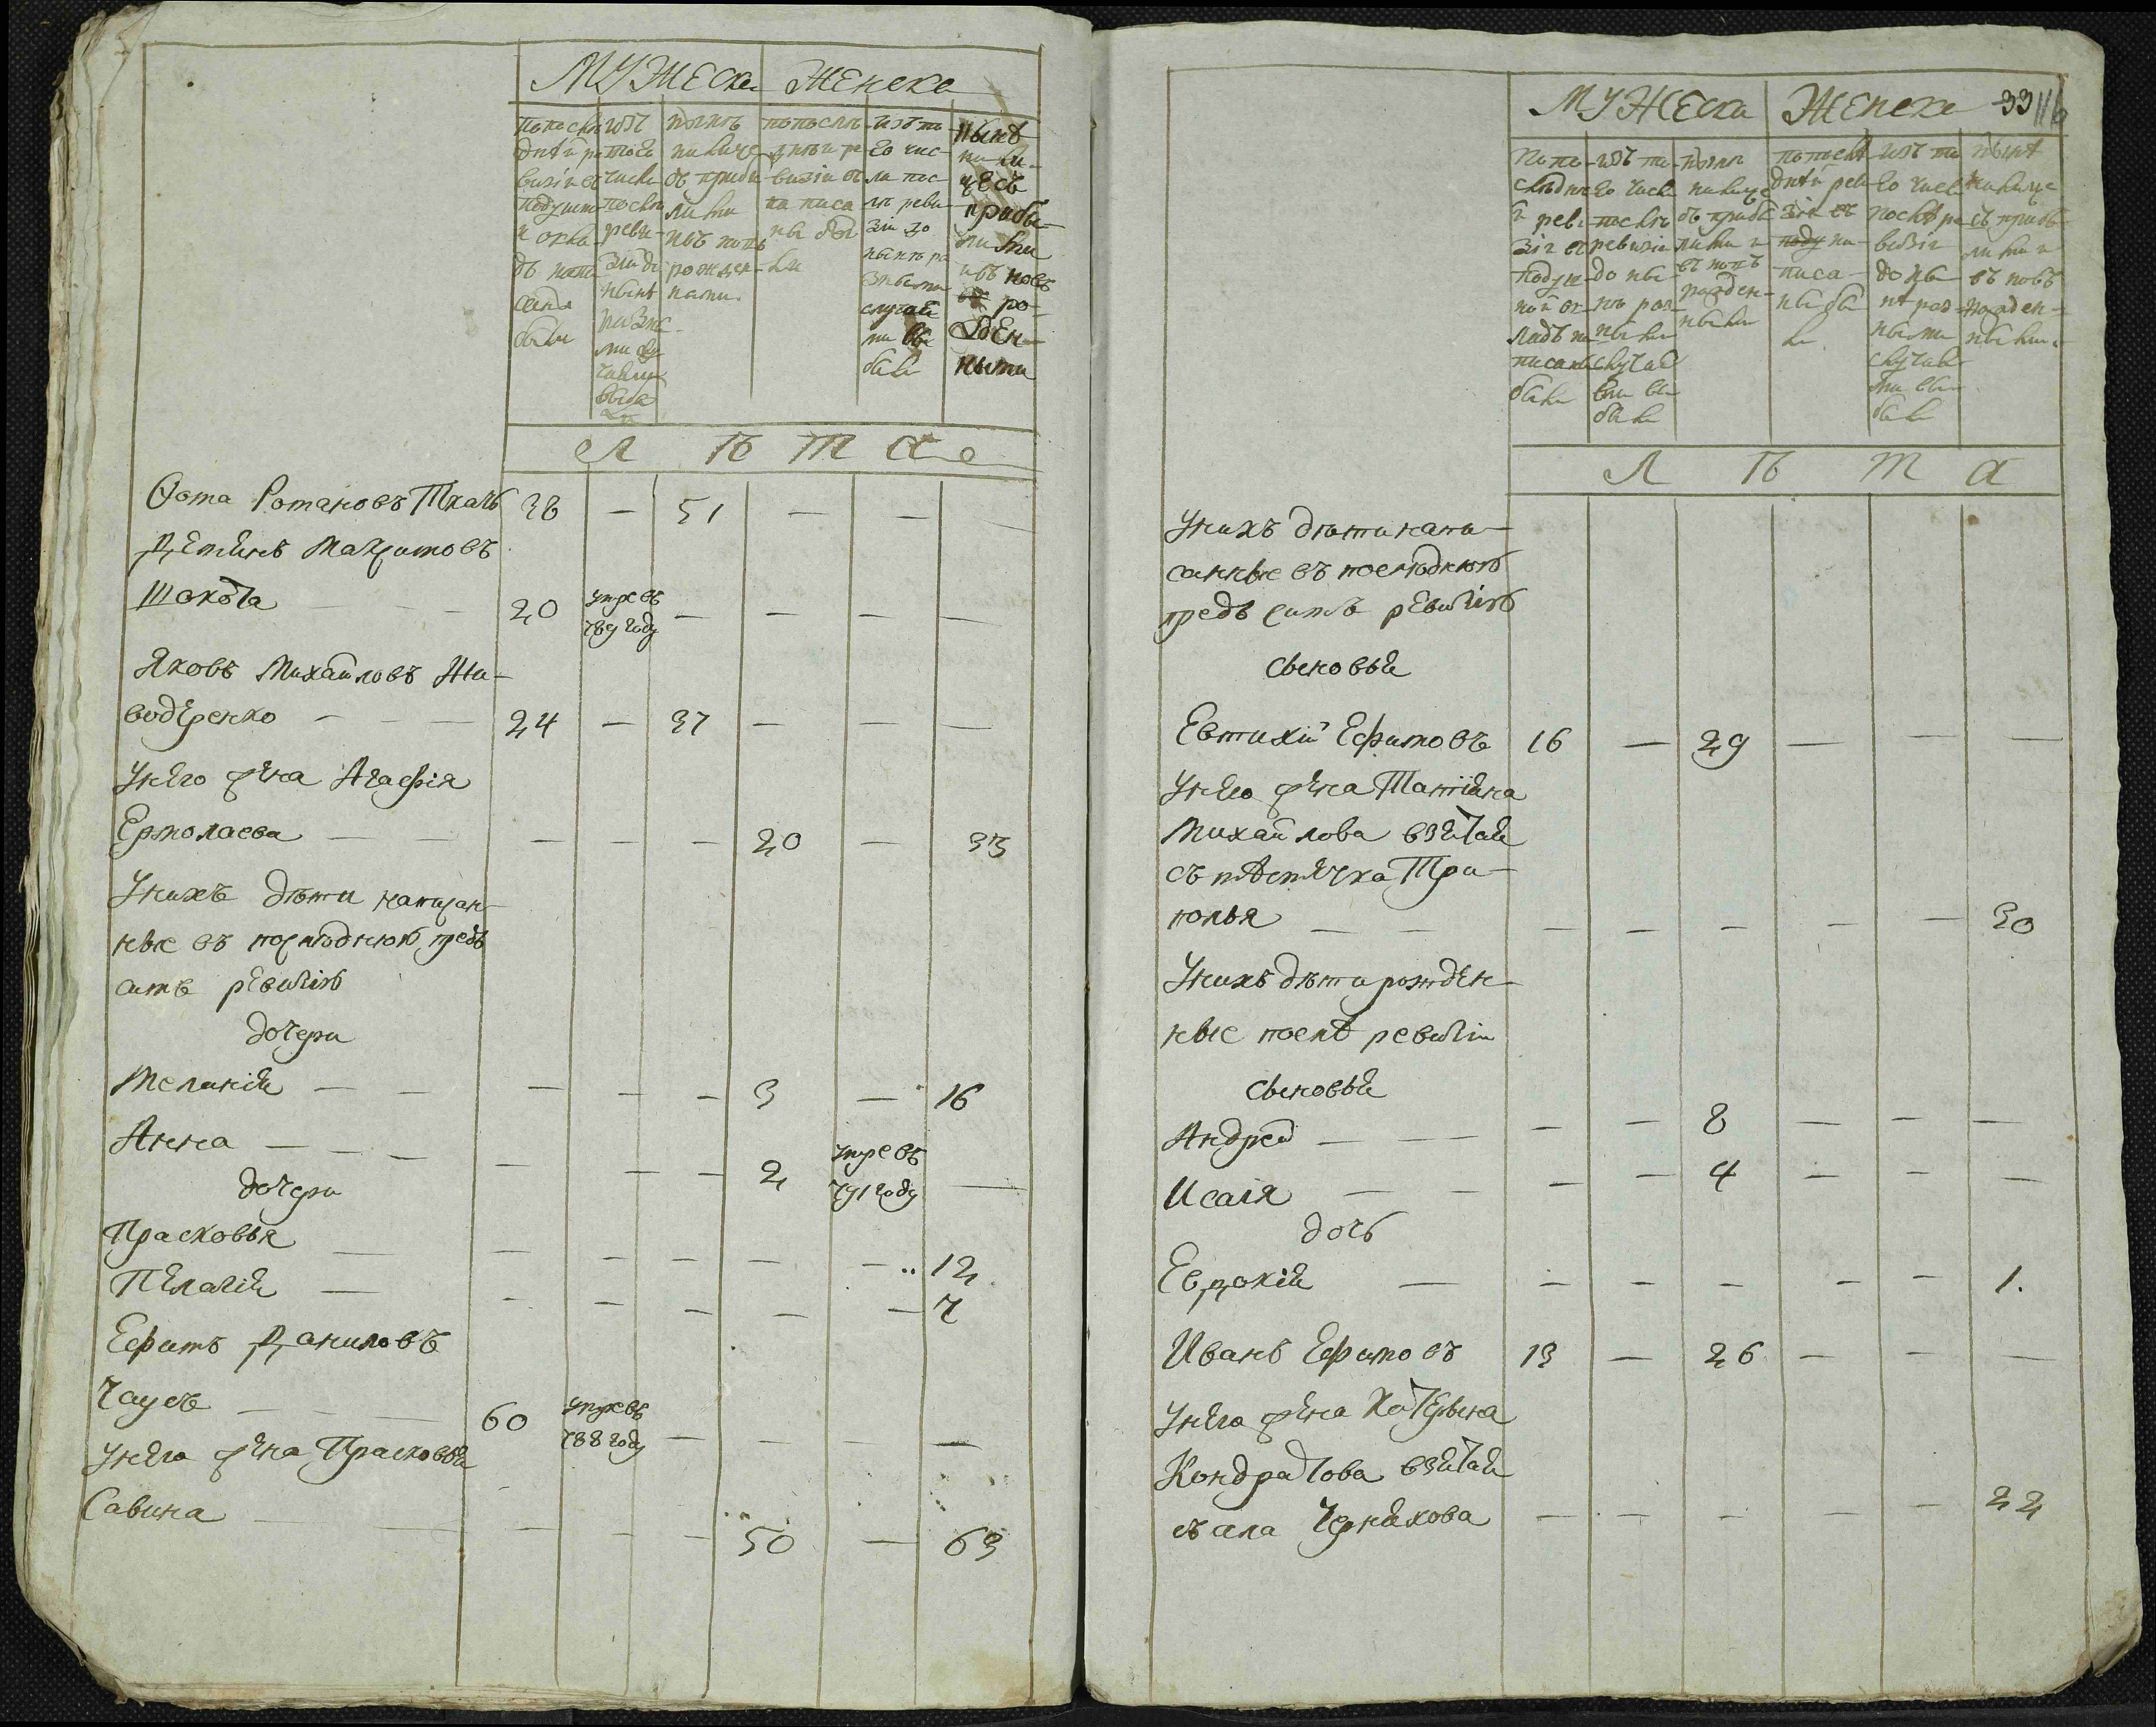 Мужеска Женска
По последней ревизии въ подушн окладѣ написаны были
изъ того числа послѣ ревизии до нынѣ разными случаями выбыло
нынѣ налицо съ прибылыми и въ новь рожденными
по последней ревизии написаны были
изъ того числа послѣ ревизии до нынѣ разными случаями выбыли
нынѣ налицесъ прибылыми въ новъ рожденными
Л Ѣ Т А
Ѳома Романовъ Ткачь 38 — 51 — — —
Демянъ Максимовъ
Шокота 20 умре въ 789 году — — — —
Яковъ Михайловъ Жи-
водеренко 24 — 37 — — —
У него жена Агафія
Ермолаева — — — 20 — 33
У нихъ дѣти написан-
ные въ последнюю предъ
симъ ревизію
дочери
Меланія — — — 3 — 16
Анна — — — 2 умре въ 791 году —
дочери
Прасковья — — — — — 12
Пелагія — — — — — 7
Ефимъ Даниловъ
Чаусъ 60 умре въ 788 году — — — —
У него жена Прасковья
Савина — — — 50 — 63
Мужеска Женска 33 116
По последней ревизіи въ подушной окладъ написаны были
изъ того числа послѣ ревизіи до нынѣ разными случаеми выбыли
нынѣ налице съ прибылыми и въ новъ рожденными
по последней ревизіи написаны были
изъ того числа послѣ ревизіи до нынѣ разными случаями выбыли
нынѣ налице съ прибылыми и въ новъ рожденными
Л Ѣ Т А
У нихъ дѣти напи-
санные въ последнюю
предъ симъ ревизію
сыновья
Евтихій Ефимовъ 16 — 29 — — —
У него жена Татіяна
Михайлова взятая
съ мѣстечка Три-
полья — — — — — 30
У нихъ дѣти рожден-
ные послѣ ревизіи
сыновья
Андрей — — 8 — — —
Исаія — — 4 — — —
дочь
Евдокія — — — — — 1.
Иванъ Ефимовъ 13 — 26 — — —
У него жена Катерына
Кондратова взятая
съ села Черняхова — — — — — 22